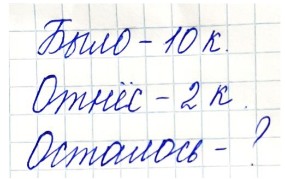 Было – 10 к.
Отнёс – 2 к.
Осталось – ?